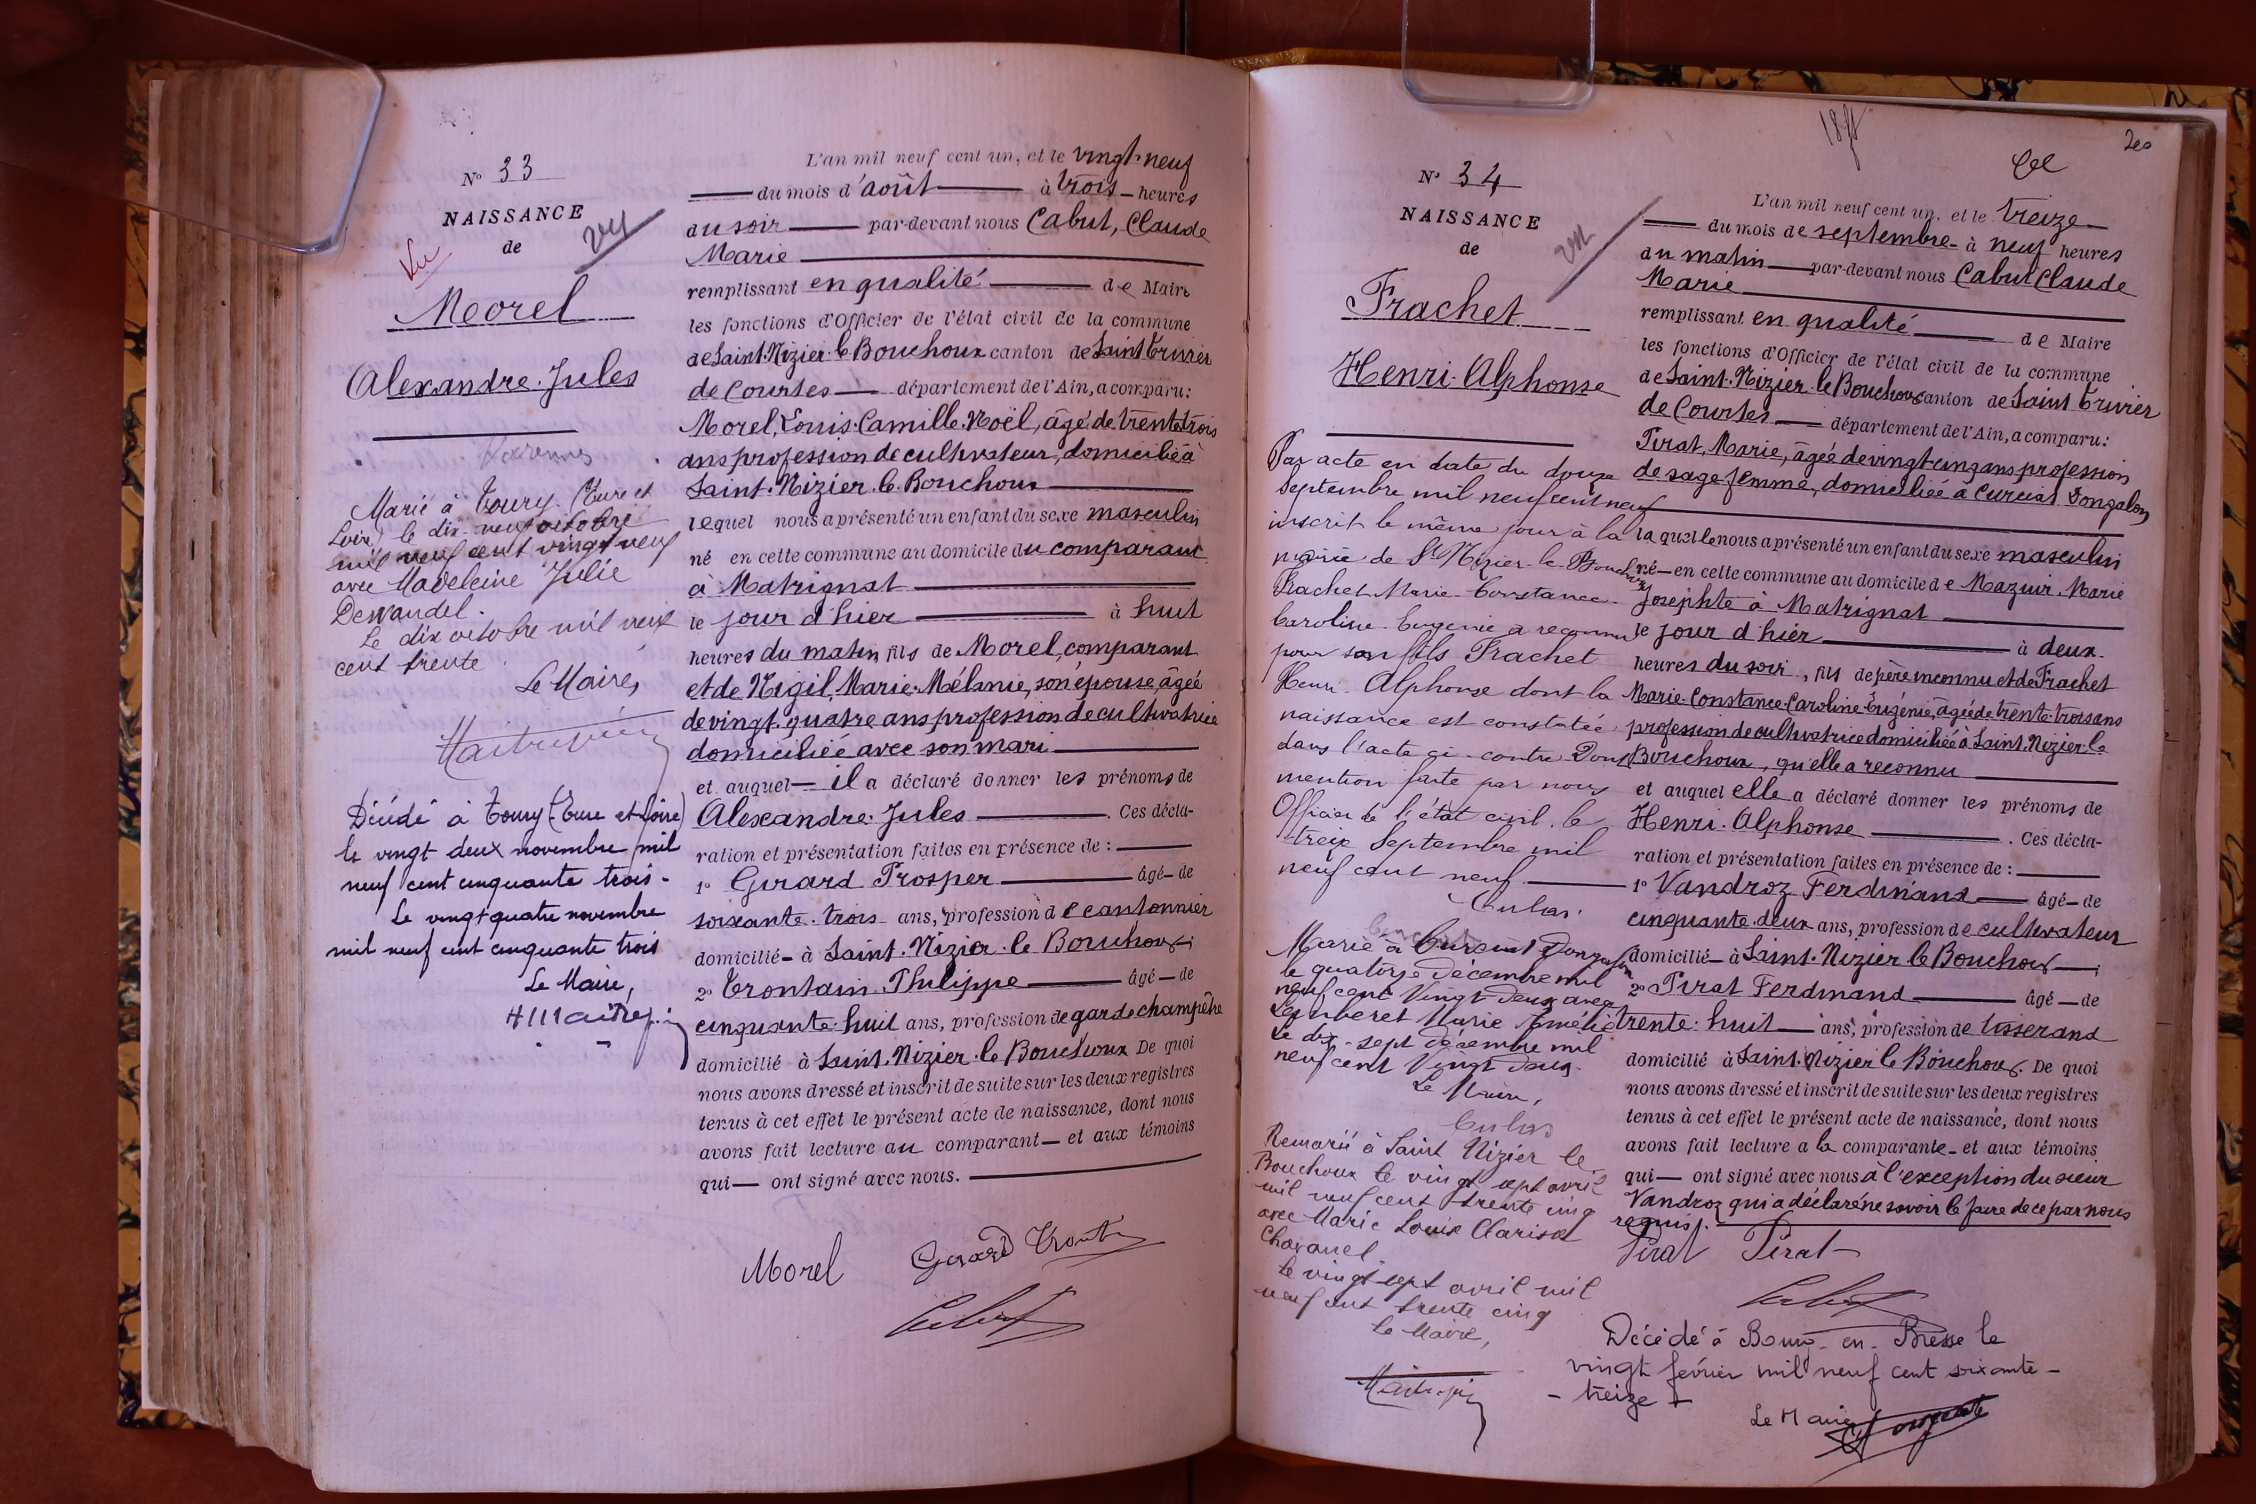 N° 33
NAISSANCE
de
Vu
Morel
Alexandre Jules
Marié à Toury (Eure et
Loire) le dix-neuf octobre
mil neuf cent vingt neuf
avec Madeleine Julie
Dewandel.
Le dix octobre mil neuf
cent trente
Le Maire,
Décédé à Toury (Eure et Loire)
le vingt deux novembre mil
neuf cent cinquante trois.
Le vingt quatre novembre
mil neuf cent cinquante trois
Le Maire,
L'an mil neuf cent un, et le vingt-neuf
du mois d'août à trois heures
du soir par-devant nous Cabut, Claude
Marie
remplissant en qualité de Maire
les fonctions d'Officier de l'état civil de la commune
de Saint-Nizier-le-Bouchoux canton de Saint Trivier
de Courtes département de l'Ain, a comparu:
Morel, Louis-Camille-Noël, âgé de trente trois
ans profession de cultivateur, domicilié à
Saint-Nizier-le-Bouchoux
lequel nous a présenté un enfant du sexe masculin
né en cette commune au domicile du comparant
à Matrignat
le jour d'hier à huit
heures du matin, fils de Morel, comparant
et de Nigil, Marie-Mélanie, son épouse, âgée
de vingt-quatre ans profession de cultivatrice
domiciliée avec son mari
et auquel il a déclaré donner les prénoms de
Alexandre Jules. Ces décla-
ration et présentation faites en présence de :
1° Girard Prosper âgé de
soixante-trois ans, profession de cantonnier
domicilié à Saint-Nizier-le-Bouchoux;
2° Trontain Philippe âgé de
cinquante-huit ans, profession de garde champêtre
domicilié à Saint-Nizier-le-Bouchoux De quoi
nous avons dressé et inscrit de suite sur les deux registres
tenus à cet effet le présent acte de naissance, dont nous
avons fait lecture au comparant et aux témoins
qui ont signé avec nous.
Morel Girard
200
N° 34
NAISSANCE
de
Frachet
Henri-Alphonse
Par acte en date du douze
Septembre mil neuf cent neuf
inscrit le même jour à la
mairie de St Nizier-le-Bouchoux
Frachet Marie-Constance-
Caroline-Eugénie a reconnu
pour son fils Frachet
Henri-Alphonse dont la
naissance est constatée
dans l'acte ci-contre Dont
mention faite par nous
Officier de l'état civil le
treize Septembre mil
neuf cent neuf.
Marié à Curciat Dongalon
le quatorze Décembre mil
neuf cent Vingt deux avec
Marie Amélie
Le dix-sept décembre mil
neuf cent Vingt deux.
Le Maire,
Remarié à Saint Nizier le
Bouchoux le vingt sept avril
mil neuf cent trente cinq
avec Marie Louise Clarisse
Chavanel
Le vingt sept avril mil
neuf cent trente cinq
Le Maire,
L'an mil neuf cent un, et le treize
du mois de septembre à neuf heures
du matin par-devant nous Cabut Claude
Marie
remplissant en qualité de Maire
les fonctions d'Officier de l'état civil de la commune
de Saint-Nizier-le-Bouchoux canton de Saint Trivier
de Courtes département de l'Ain, a comparu:
Pirat, Marie, âgée de vingt cinq ans profession
de sage femme, domiciliée à Curciat Dongalon
laquelle nous a présenté un enfant du sexe masculin
né en cette commune au domicile de Mazuir, Marie
Josephte à Matrignat
le jour d'hier à deux
heures du soir, fils de père inconnu et de Frachet
Marie-Constance-Caroline-Eugénie, âgée de trente-trois ans
profession de cultivatrice domiciliée à Saint-Nizier-le
Bouchoux, qu'elle a reconnu
et auquel elle a déclaré donner les prénoms de
Henri-Alphonse. Ces décla-
ration et présentation faites en présence de :
1° Vandroz Ferdinand âgé de
cinquante-deux ans, profession de cultivateur
domicilié à Saint-Nizier le Bouchoux;
2° Pirat Ferdinand âgé de
trente-huit ans, profession de tisserand
domicilié à Saint-Nizier le Bouchoux. De quoi
nous avons dressé et inscrit de suite sur les deux registres
tenus à cet effet le présent acte de naissance, dont nous
avons fait lecture a la comparante et aux témoins
qui ont signé avec nous à l'exception du sieur
Vandroz qui a déclaré ne savoir le faire de ce par nous
requis.
Pirat Pirat
Décédé à Bourg-en-Bresse le
vingt février mil neuf cent soixante-
-treize
Le Maire